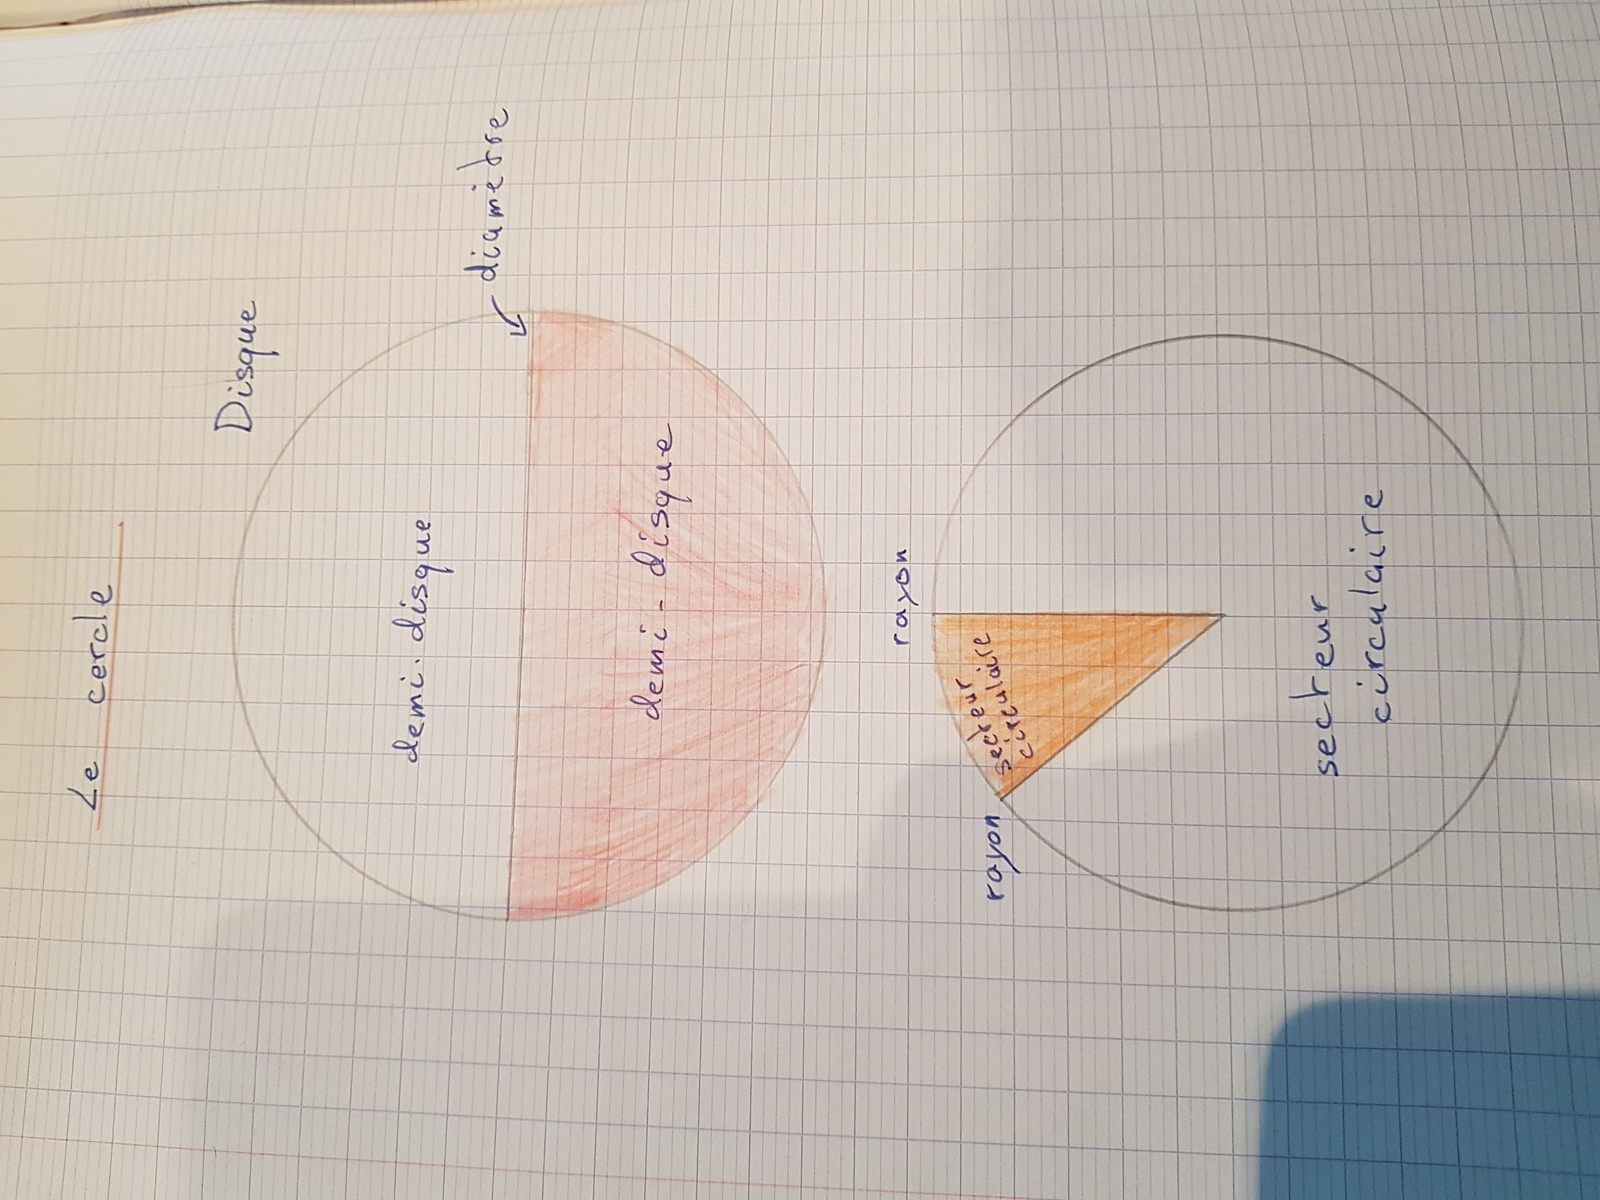 Le cercle
Disque
diamètre
demi-disque
demi-disque
rayon
rayon
secteur
circulaire
secteur
circulaire